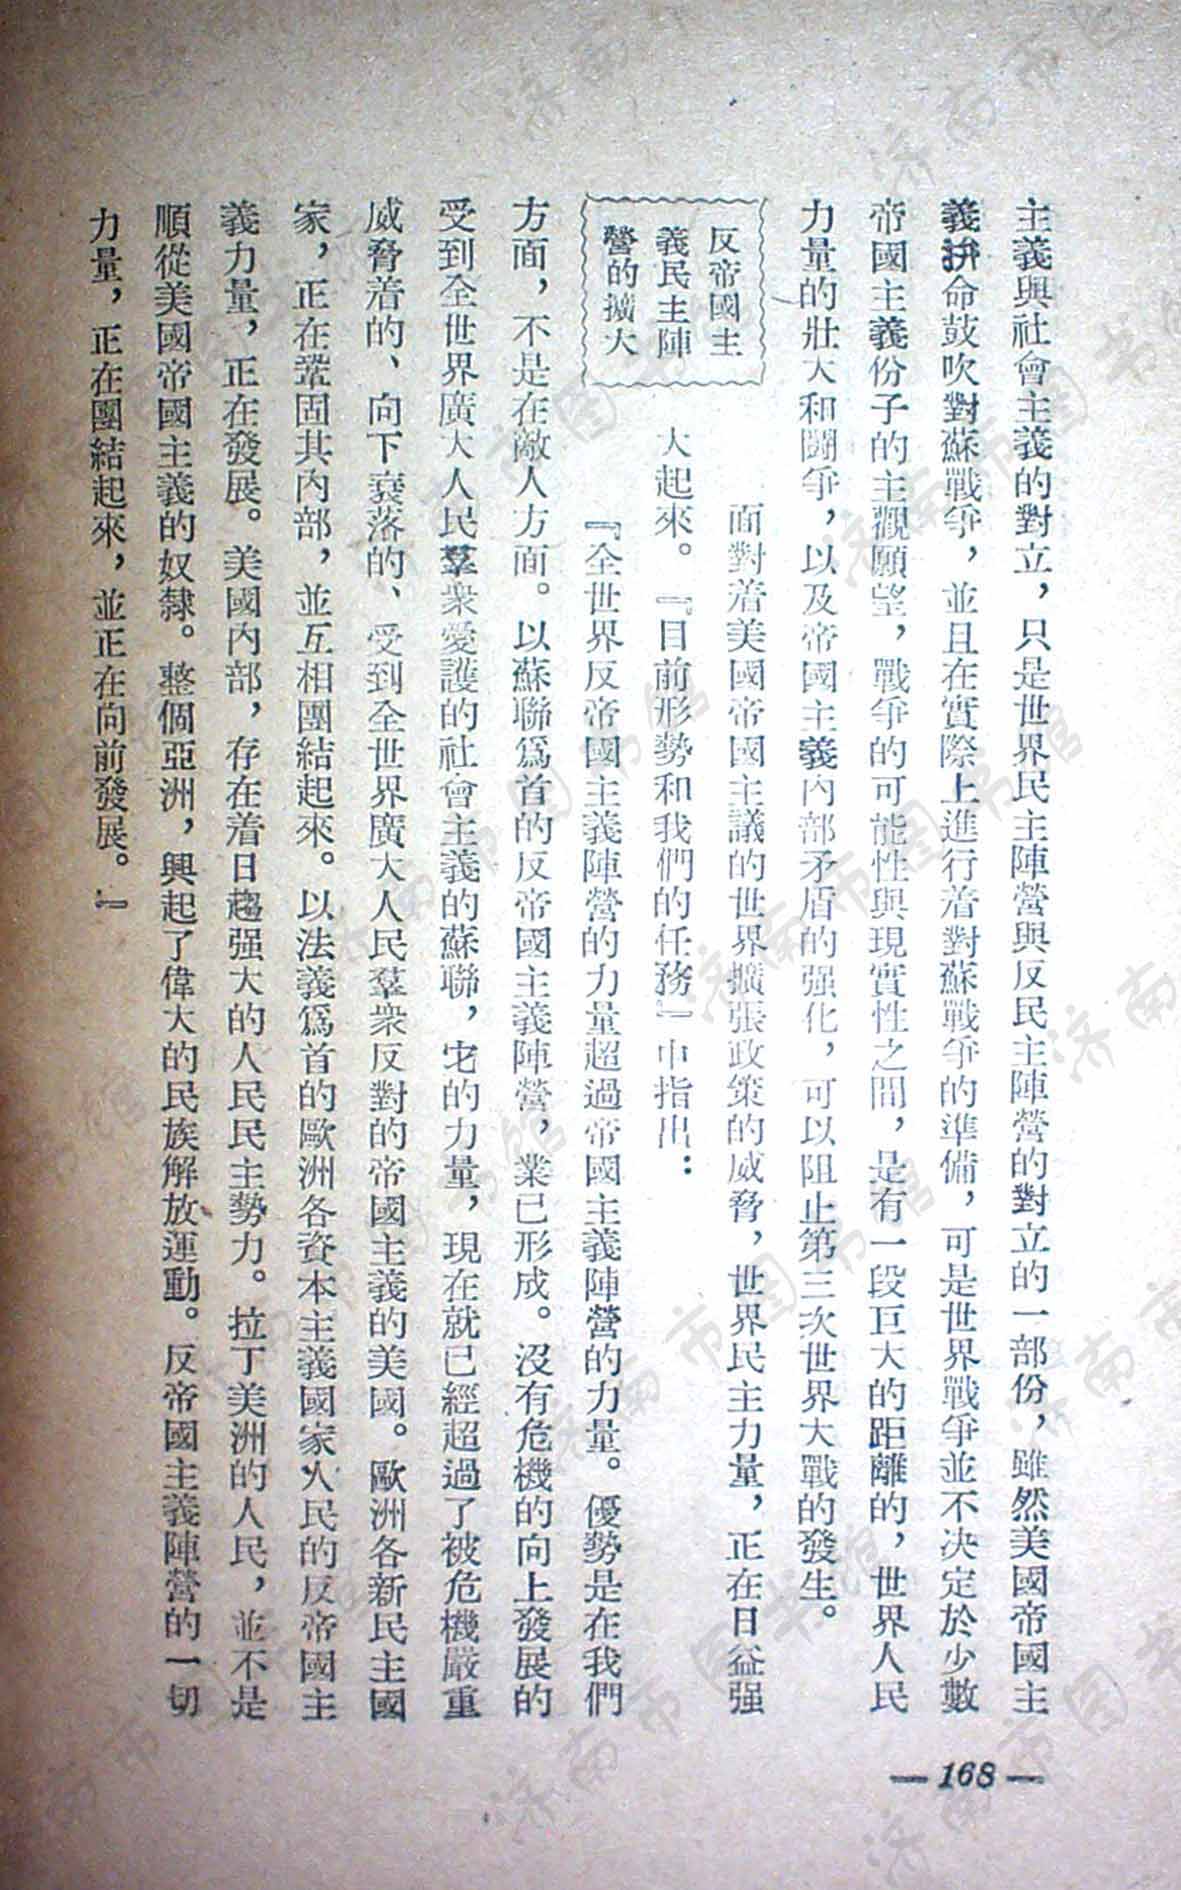 主義與社會主義的對立，只是世界民主陣營與反民主陣營的對立的一部份，雖然美國帝國主
義拚命鼓吹對蘇戰爭，並且在實際上進行着對蘇戰爭的準備，可是世界戰爭並不决定於少數
帝國主義份子的主觀願望，戰爭的可能性與現實性之間，是有一段巨大的距離的，世界人民
力量的壯大和鬬爭，以及帝國主義內部矛盾的强化，可以阻止第三次世界大戰的發生。
反帝國主
義民主陣
營的擴大
面對着美國帝國主議的世界擴張政策的威脅，世界民主力量，正在日益强
大起來。『目前形勢和我們的任務』中指出：
『全世界反帝國主義陣營的力量超過帝國主義陣營的力量。優勢是在我們
方面，不是在敵人方面。以蘇聯爲首的反帝國主義陣營，業已形成。沒有危機的向上發展的
受到全世界廣大人民羣衆愛護的社會主義的蘇聯，它的力量，現在就已經超過了被危機嚴重
威脅着的、向下衰落的、受到全世界廣大人民羣衆反對的帝國主義的美國。歐洲各新民主國
家，正在鞏固其內部，並互相團結起來。以法義爲首的歐洲各資本主義國家人民的反帝國主
義力量，正在發展。美國內部，存在着日趨强大的人民民主勢力。拉丁美洲的人民，並不是
順從美國帝國主義的奴隸。整個亞洲，興起了偉大的民族解放運動。反帝國主義陣營的一切
力量，正在團結起來，並正在向前發展。』
— 168 —
济南市图书馆